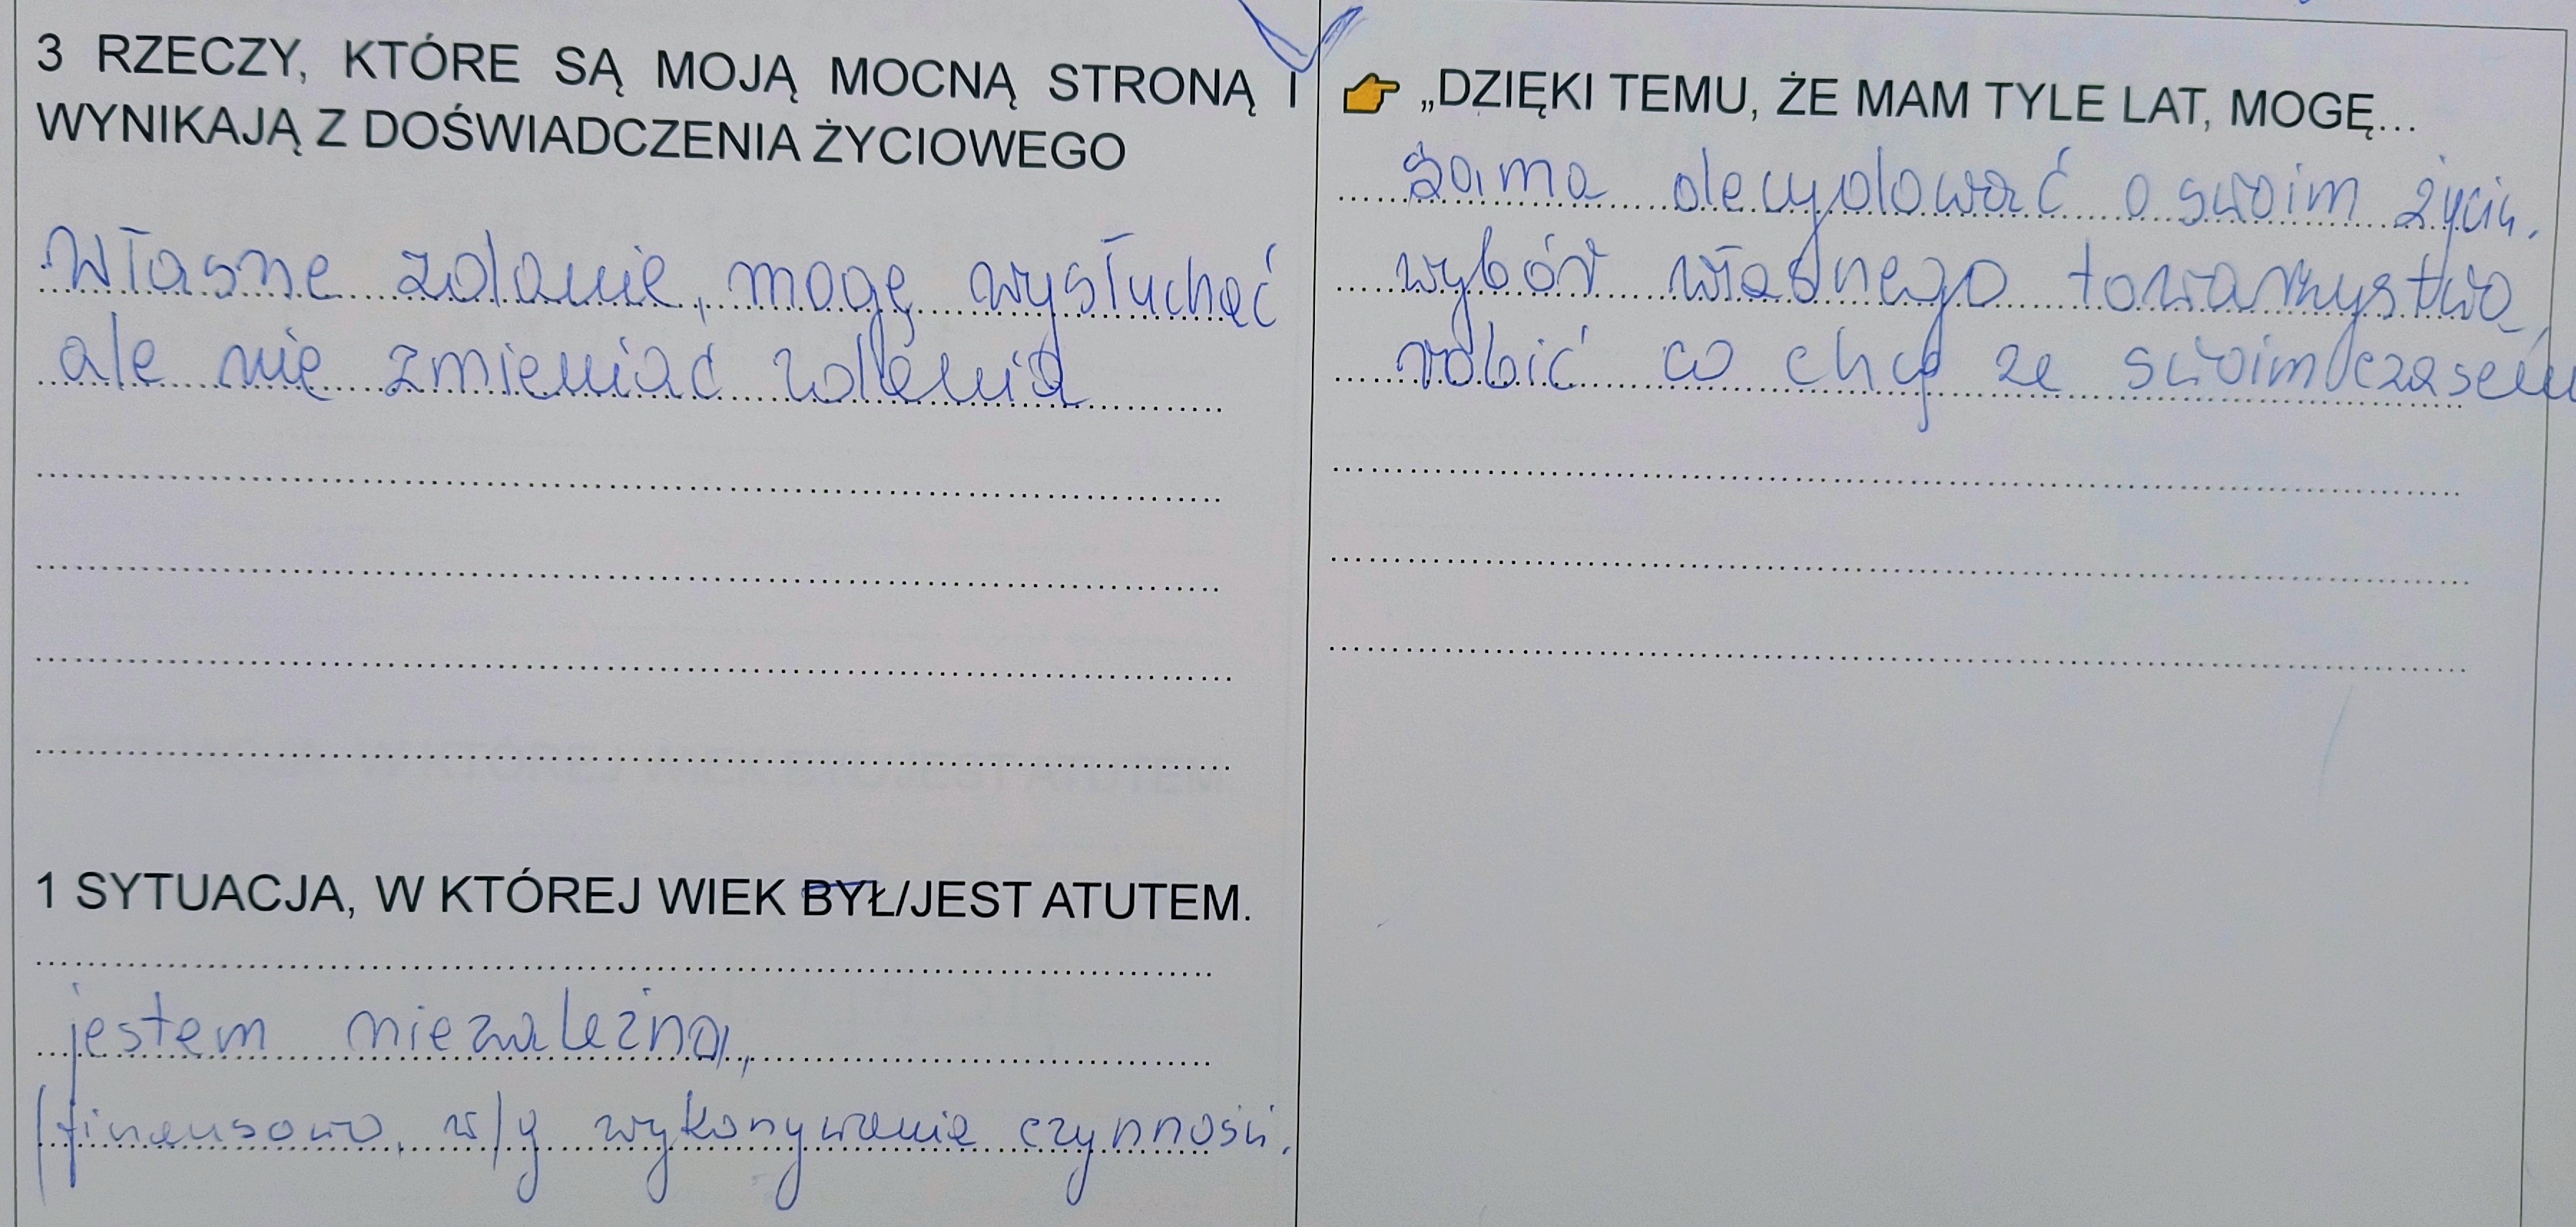 3 RZECZY, KTÓRE SĄ MOJĄ MOCNĄ STRONĄ I
WYNIKAJĄ Z DOŚWIADCZENIA ŻYCIOWEGO
Własne zdanie, mogę wysłuchać
ale nie zmieniać zdania
1 SYTUACJA, W KTÓREJ WIEK BYŁ/JEST ATUTEM.
jestem niezależna,
(finansowo, w/g wykonywania czynności.
👉 „DZIĘKI TEMU, ŻE MAM TYLE LAT, MOGĘ...
Sama decydować o swoim życiu.
wybór własnego towarzystwa,
robić co chcę ze swoim czasem